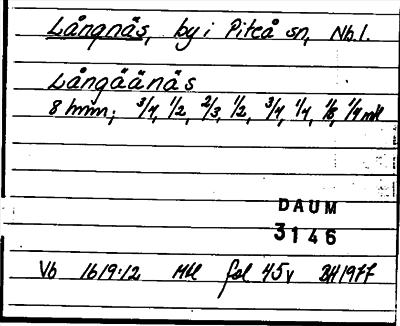 Långnäs, by i Piteå sn, Nb.l.
Långäänäs
8 hmn; 3/4, 1/2, 2/3, 1/2, 3/4, 1/4, 1/8, 1/4 mtl
DAUM
3146
Vb 1619:12 Mtl fol 45v BH1977